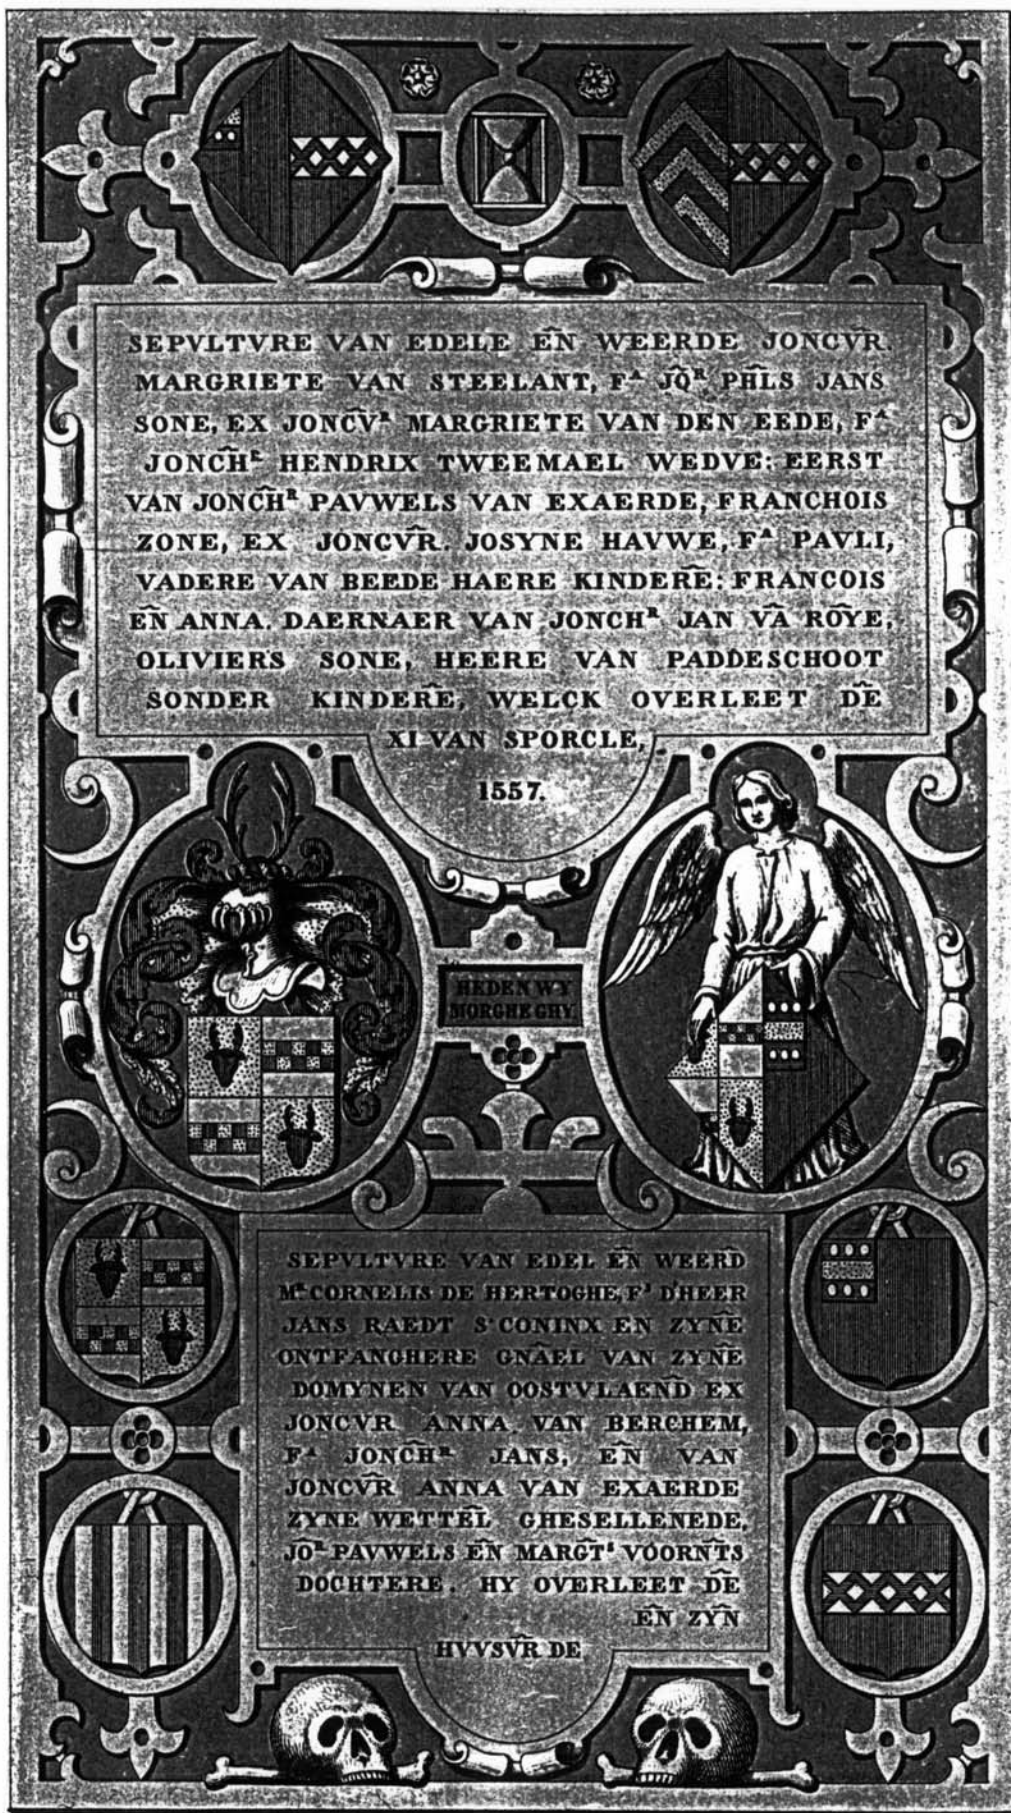 SEPVLTVRE VAN EDELE EN̂ WEERDE JONCVR̂.
MARGRIETE VAN STEELANT, Fᴬ JQ̂ᴿ PHL̂S JANS
SONE, EX JONCV̂ᴿ MARGRIETE VAN DEN EEDE, Fᴬ
JONCĤᴿ HENDRIX TWEEMAEL WEDVE: EERST
VAN JONCĤᴿ PAVWELS VAN EXAERDE, FRANCHOIS
ZONE, EX JONCVR̂. JOSYNE HAVWE, Fᴬ PAVLI,
VADERE VAN BEEDE HAERE KINDERÊ: FRANCOIS
EN̂ ANNA. DAERNAER VAN JONCHᴿ JAN VÂ ROŶE,
OLIVIERS SONE, HEERE VAN PADDESCHOOT
SONDER KINDERÊ, WELCK OVERLEET DÊ
XI VAN SPORCLE,
1557.
HEDEN WY
MORGHE GHY.
SEPVLTVRE VAN EDEL EN̂ WEERD̂
Mᴿ CORNELIS DE HERTOGHE, Fˢ D'HEER
JANS RAEDT S'CONINX EN ZYNÊ
ONTFANGHERE GNÂEL VAN ZYNÊ
DOMYNEN VAN OOSTVLAEND̂ EX
JONCVR ANNA VAN BERCHEM,
Fᴬ JONCĤᴿ JANS, EN̂ VAN
JONCVR̂ ANNA VAN EXAERDE
ZYNE WETTEL̂ GHESELLENEDE,
JÔᴿ PAVWELS EN̂ MARGTˢ VOORN̂TS
DOCHTERE. HY OVERLEET DÊ
EN̂ ZYN̂
HVVSVR̂ DE